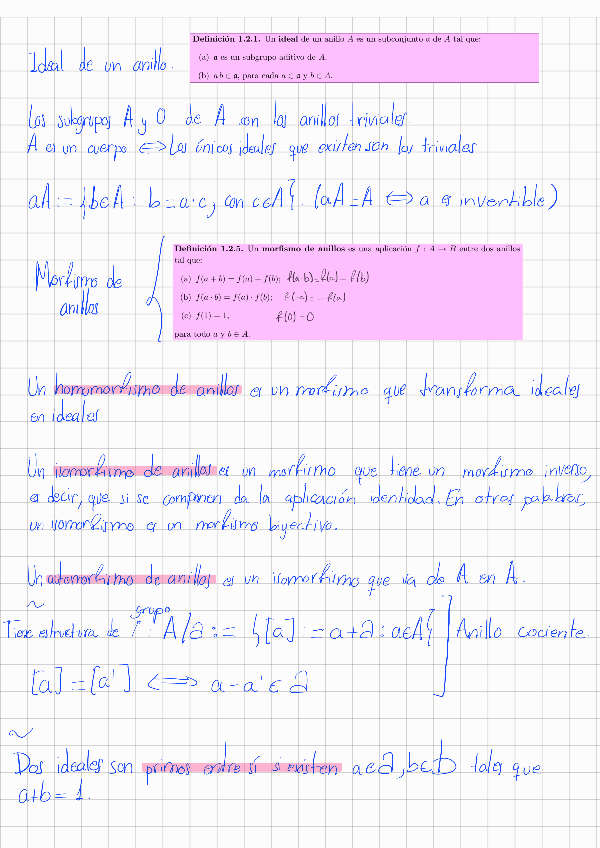 Definición 1.2.1. Un ideal de un anillo A es un subconjunto a de A tal que:
Ideal de un anillo.
(a) a es un subgrupo aditivo de A.
(b) ab ∈ a, para cada a ∈ a y b ∈ A.
Los subgrupos A y 0 de A son los anillos triviales
A es un cuerpo ⟺ Los únicos ideales que existen son los triviales
aA := {b∈A : b = a·c, con c∈A}. (aA = A ⟺ a es invertible)
Definición 1.2.5. Un morfismo de anillos es una aplicación f : A → B entre dos anillos
tal que:
Morfismo de
anillos
(a) f(a + b) = f(a) + f(b); f(a-b) = f(a) - f(b)
(b) f(a · b) = f(a) · f(b); f(-a) = -f(a)
(c) f(1) = 1, f(0) = 0
para todo a y b ∈ A.
Un homomorfismo de anillos es un morfismo que transforma ideales
en ideales
Un isomorfismo de anillos es un morfismo que tiene un morfismo inverso,
es decir, que si se componen da la aplicación identidad. En otras palabras,
un isomorfismo es un morfismo biyectivo.
Un automorfismo de anillos es un isomorfismo que va de A en A.
grupo
Tiene estructura de A/a := {[a] := a+a : a∈A} Anillo cociente.
[a] = [a'] ⟺ a-a' ∈ a
Dos ideales son primos entre sí si existen a∈a, b∈b tales que
a+b = 1.